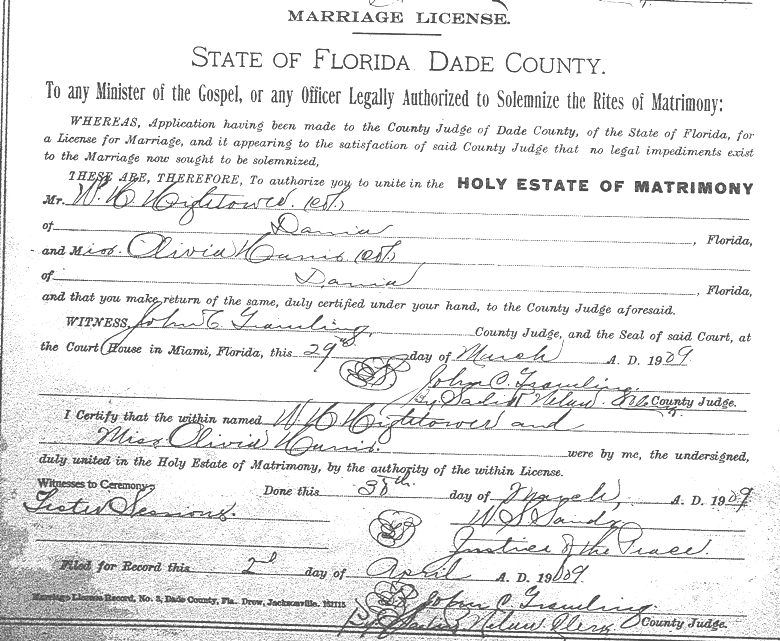 MARRIAGE LICENSE.
STATE OF FLORIDA DADE COUNTY.
To any Minister of the Gospel, or any Officer Legally Authorized to Solemnize the Rites of Matrimony:
WHEREAS, Application having been made to the County Judge of Dade County, of the State of Florida, for
a License for Marriage, and it appearing to the satisfaction of said County Judge that no legal impediments exist
to the Marriage now sought to be solemnized,
THESE ARE, THEREFORE, To authorize you to unite in the HOLY ESTATE OF MATRIMONY
Mr. W H Hightower (col)
of Dania, Florida,
and Miss. Olivia (col)
of Dania, Florida,
and that you make return of the same, duly certified under your hand, to the County Judge aforesaid.
WITNESS, John C Gramling, County Judge, and the Seal of said Court, at
the Court House in Miami, Florida, this 29th day of March A. D. 1909
John C. Gramling.
By County Judge.
I Certify that the within named W H Hightower and
Miss Olivia were by me, the undersigned,
duly united in the Holy Estate of Matrimony, by the authority of the within License.
Witnesses to Ceremony Done this 30th day of March, A. D. 1909
Sessions. W S
Justice of the Peace.
Filed for Record this 2nd day of April A. D. 1909.
Marriage License Record, No. 3, Dade County, Fla. Drew, Jacksonville. John C Gramling
By Clerk County Judge.